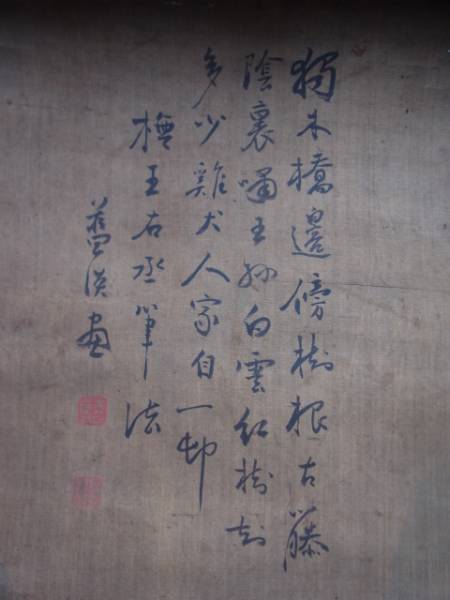 獨木橋邊傍樹根古藤
陰裏嘯王孫白雲紅樹知
多少雞犬人家自一邨
橅王右丞筆法
畫